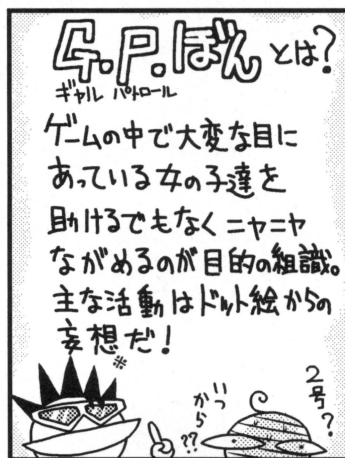 G.P.ぼんとは?
ギャル パトロール
ゲームの中で大変な目に
あっている女の子達を
助けるでもなくニヤニヤ
ながめるのが目的の組識。
主な活動はドット絵からの
妄想だ!
2号?
いつ
から??